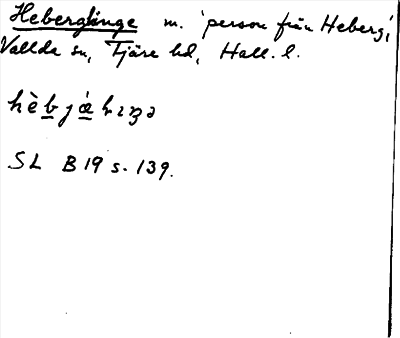 Heberglänge m. 'person från Heberg,'
Vallda sn, Fjäre hd, Hall. l.
hèbjáhɪŋə
SL B 19 s. 139.